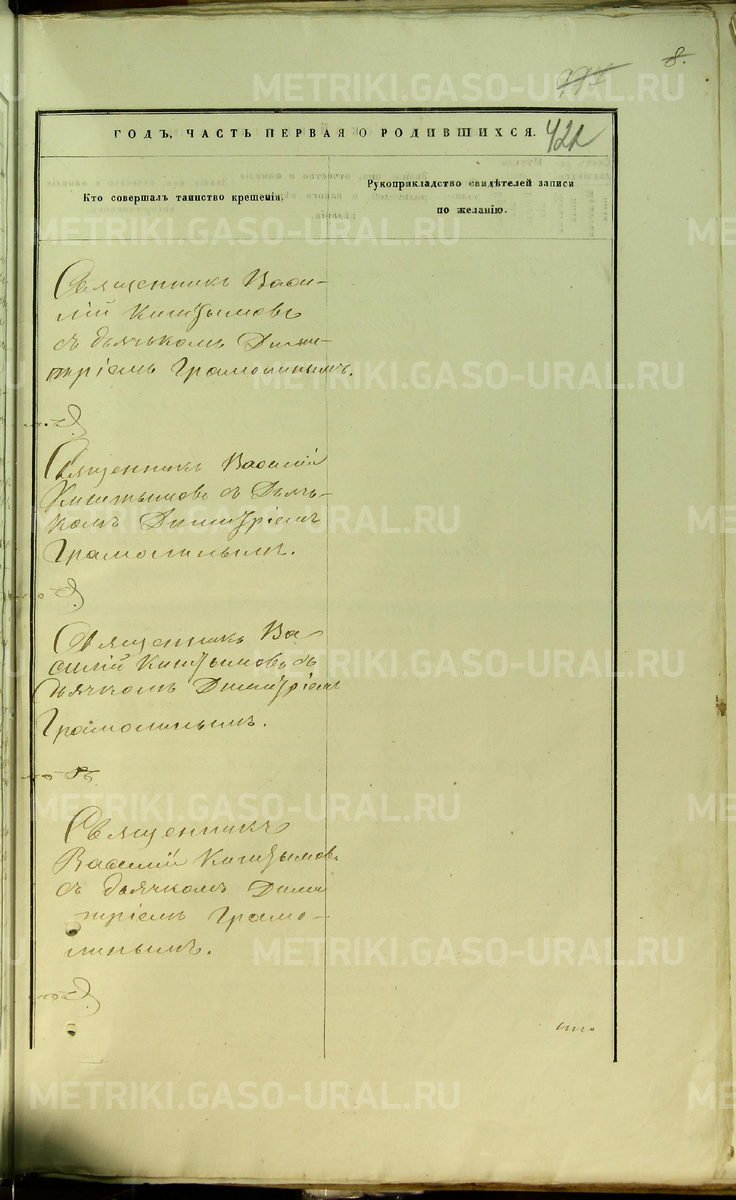 8.
422
ГОДЪ, ЧАСТЬ ПЕРВАЯ О РОДИВШИХСЯ.
Кто совершалъ таинство крещенія.
Рукоприкладство свидѣтелей записи
по желанію.
Священникъ Васи-
лій Киштымовъ
съ дьячькомъ Дими-
тріемъ Грамолинымъ.
Священникъ Василій
Киштымовъ съ Дьячь-
комъ Димитріемъ
Грамолинымъ.
Священникъ Ва
силій Киштымовъ съ
Дьячкомъ Димитріемъ
Грамолинымъ.
Священникъ
Василій Киштымовъ
съ дьячкомъ Дими
тріемъ Грамо-
линымъ.
METRIKI.GASO-URAL.RU